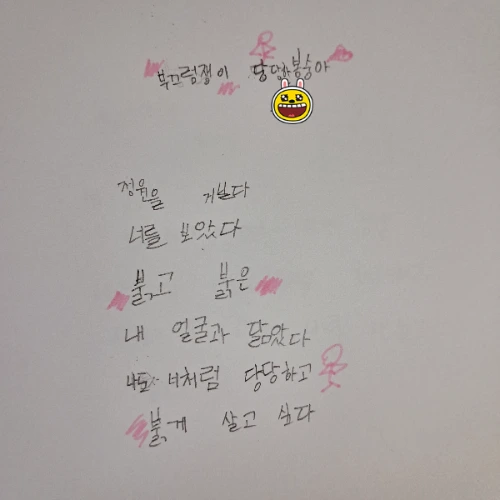 부끄럼쟁이 당당한 봉숭아
정원을 거닐다
너를 보았다
붉고 붉은
내 얼굴과 닮았다
나도 너처럼 당당하고
붉게 살고 싶다